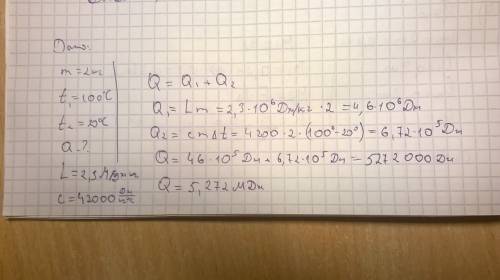 Дано:
m = 2кг
t₁ = 100°C
t₂ = 20°C
Q - ?
L = 2,3 МДж/кг
c = 42000 Дж/кг°C
Q = Q₁ + Q₂
Q₁ = Lm = 2,3 · 10⁶ Дж/кг · 2 = 4,6 · 10⁶ Дж
Q₂ = cm∆t = 4200 · 2 · (100° - 20°) = 6,72 · 10⁵ Дж
Q = 46 · 10⁵ Дж + 6,72 · 10⁵ Дж = 5272000 Дж
Q = 5,272 МДж